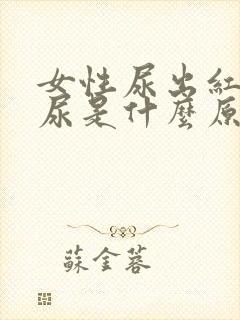 女性尿出紅
尿是什麼原
蘇金蓉